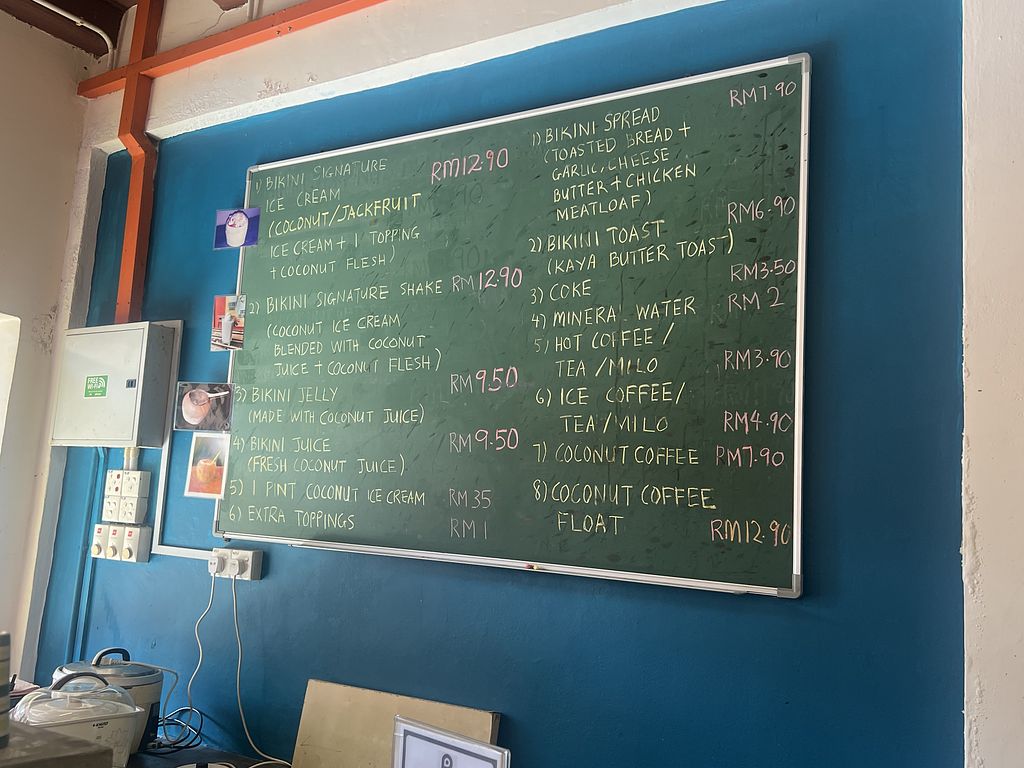 1) BIKINI SIGNATURE RM12.90
ICE CREAM
(COCONUT/JACKFRUIT
ICE CREAM + 1 TOPPING
+ COCONUT FLESH)
2) BIKINI SIGNATURE SHAKE RM12.90
(COCONUT ICE CREAM
BLENDED WITH COCONUT
JUICE + COCONUT FLESH)
3) BIKINI JELLY RM9.50
(MADE WITH COCONUT JUICE)
4) BIKINI JUICE RM9.50
(FRESH COCONUT JUICE)
5) 1 PINT COCONUT ICE CREAM RM35
6) EXTRA TOPPINGS RM1
RM7.90
1) BIKINI SPREAD
(TOASTED BREAD +
GARLIC, CHEESE
BUTTER + CHICKEN
MEATLOAF)
RM6.90
2) BIKINI TOAST
(KAYA BUTTER TOAST)
3) COKE RM3.50
4) MINERAL WATER RM2
5) HOT COFFEE /
TEA / MILO RM3.90
6) ICE COFFEE/
TEA/MILO RM4.90
7) COCONUT COFFEE RM7.90
8) COCONUT COFFEE
FLOAT RM12.90
FREE
WI-FI